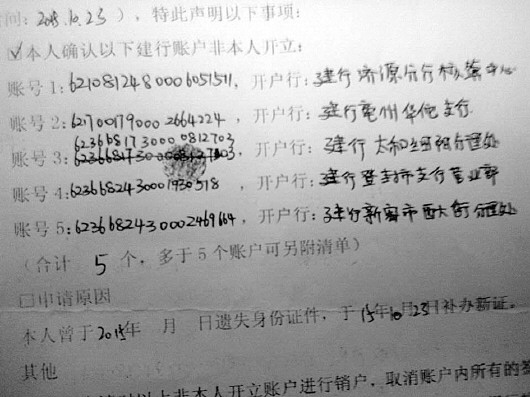 间：2015.10.23），特此声明以下事项：
☑本人确认以下建行账户非本人开立：
账号1：6210812480006051511，开户行：建行济源分行
账号2：6217001790002664224，开户行：建行亳州华佗支行
6236681730000812703
账号3：6236681730000812703，开户行：建行太和
账号4：6236682430001930518，开户行：建行登封市支行营业部
账号5：6236682430002469664，开户行：建行新密市西大街分理处
（合计 5 个，多于5个账户可另附清单）
□申请原因
本人曾于2015年 月 日遗失身份证件，于15年10月23日补办新证。
其他
以上非本人开立账户进行销户，取消账户内所有的签